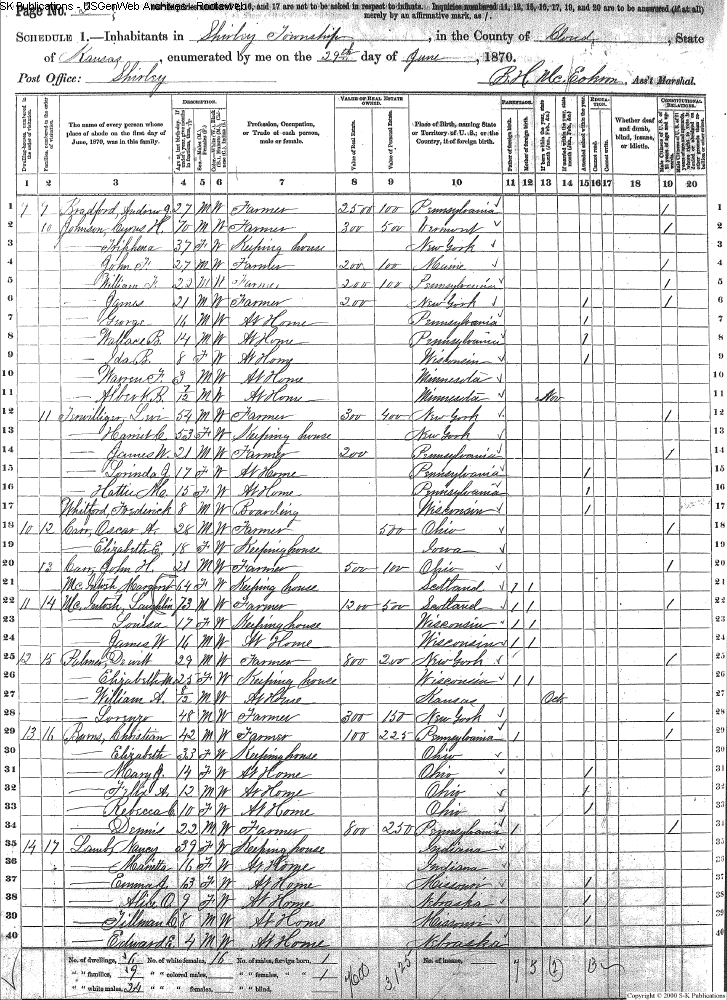 SK Publications - USGenWeb Archives - Rootsweb
Page No. 2
Inquiries numbered 7, 16, and 17 are not to be asked in respect to infants. Inquiries numbered 11, 12, 15, 16, 17, 19, and 20 are to be answered (if at all) merely by an affirmative mark, as /.
SCHEDULE 1.—Inhabitants in Shirley Township, in the County of Cloud, State
of Kansas, enumerated by me on the 29th day of June, 1870.
Post Office: Shirley
Ass't Marshal.
DESCRIPTION.
VALUE OF REAL ESTATE OWNED.
PARENTAGE.
EDUCATION.
CONSTITUTIONAL RELATIONS.
The name of every person whose place of abode on the first day of June, 1870, was in this family.
Profession, Occupation, or Trade of each person, male or female.
Value of Real Estate.
Value of Personal Estate.
Place of Birth, naming State or Territory of U. S.; or the Country, if of foreign birth.
Father of foreign birth.
Mother of foreign birth.
Attended school within the year.
Cannot read.
Cannot write.
Whether deaf and dumb, blind, insane, or idiotic.
1 2 3 4 5 6 7 8 9 10 11 12 13 14 15 16 17 18 19 20
1 9 9 Bradford, Andrew J. 27 M W Farmer 2500 100 Pennsylvania / 1
2 10 Johnson, Cyrus H. 70 M W Farmer 300 500 Vermont / 2
3 — 37 F W Keeping house New York 3
4 — John F. 27 M W Farmer 200 100 Maine / 4
5 — William F. 22 M W Farmer 200 100 Pennsylvania / 5
6 — James 21 M W Farmer 200 New York / / 6
7 — George 16 M W At Home Pennsylvania / 7
8 — Wallace B. 14 M W At Home Pennsylvania / 8
9 — Ida B. 8 F W At Home Wisconsin / 9
10 — Warren F. 3 M W At Home Minnesota 10
11 — Albert R. 7/12 M W At Home Minnesota Nov 11
12 11 Terwilliger, Levi 54 M W Farmer 300 400 New York / 12
13 — Harriet C. 53 F W Keeping house New York 13
14 — James W. 21 M W Farmer 200 Pennsylvania / 14
15 — Lorinda J. 17 F W At Home Pennsylvania / 15
16 — Hattie M. 15 F W At Home Pennsylvania / 16
17 Whitford, Frederick 8 M W Boarding Wisconsin / 17
18 10 12 Carr, Oscar A. 28 M W Farmer 500 Ohio / 18
19 — Elizabeth E. 18 F W Keeping house Iowa 19
20 13 Carr, John H. 21 M W Farmer 500 100 Ohio / 20
21 McIntosh, Margaret 64 F W Keeping house Scotland / / 21
22 11 14 McIntosh, Laughlin 73 M W Farmer 1200 500 Scotland / / / 22
23 — Louisa 17 F W Keeping house Wisconsin / / 23
24 — James W. 16 M W At Home Wisconsin / / 24
25 12 15 Palmer, Dewitt 29 M W Farmer 800 200 New York / 25
26 — Elizabeth M. 25 F W Keeping house Wisconsin / / 26
27 — William A. 8/12 M W At House Kansas Oct 27
28 — Lorenzo 48 M W Farmer 300 150 New York / 28
29 13 16 Barns, Christian 42 M W Farmer 100 225 Pennsylvania / / 29
30 — Elizabeth 33 F W Keeping house Ohio 30
31 — Mary J. 14 F W At Home Ohio / 31
32 — Felix A. 12 M W At Home Ohio / 32
33 — Rebecca C. 10 F W At Home Ohio / 33
34 — Dennis 22 M W Farmer 800 250 Pennsylvania / / 34
35 14 17 Lamb, Nancy 39 F W Keeping house Indiana 35
36 — Maretta 16 F W At Home Indiana 36
37 — Emma J. 13 F W At Home Missouri / 37
38 — Alice O. 9 F W At Home Nebraska / 38
39 — Tillman C. 8 M W At Home Missouri / 39
40 — Edward E. 4 M W At Home Nebraska 40
No. of dwellings, 6 No. of white females, 16 No. of males, foreign born, 1 No. of insane,
" " families, 9 " " colored males, " " females, " " 1
" " white males, 24 " " " females, " " blind,
7600 3,125
Copyright © 2000 S-K Publications